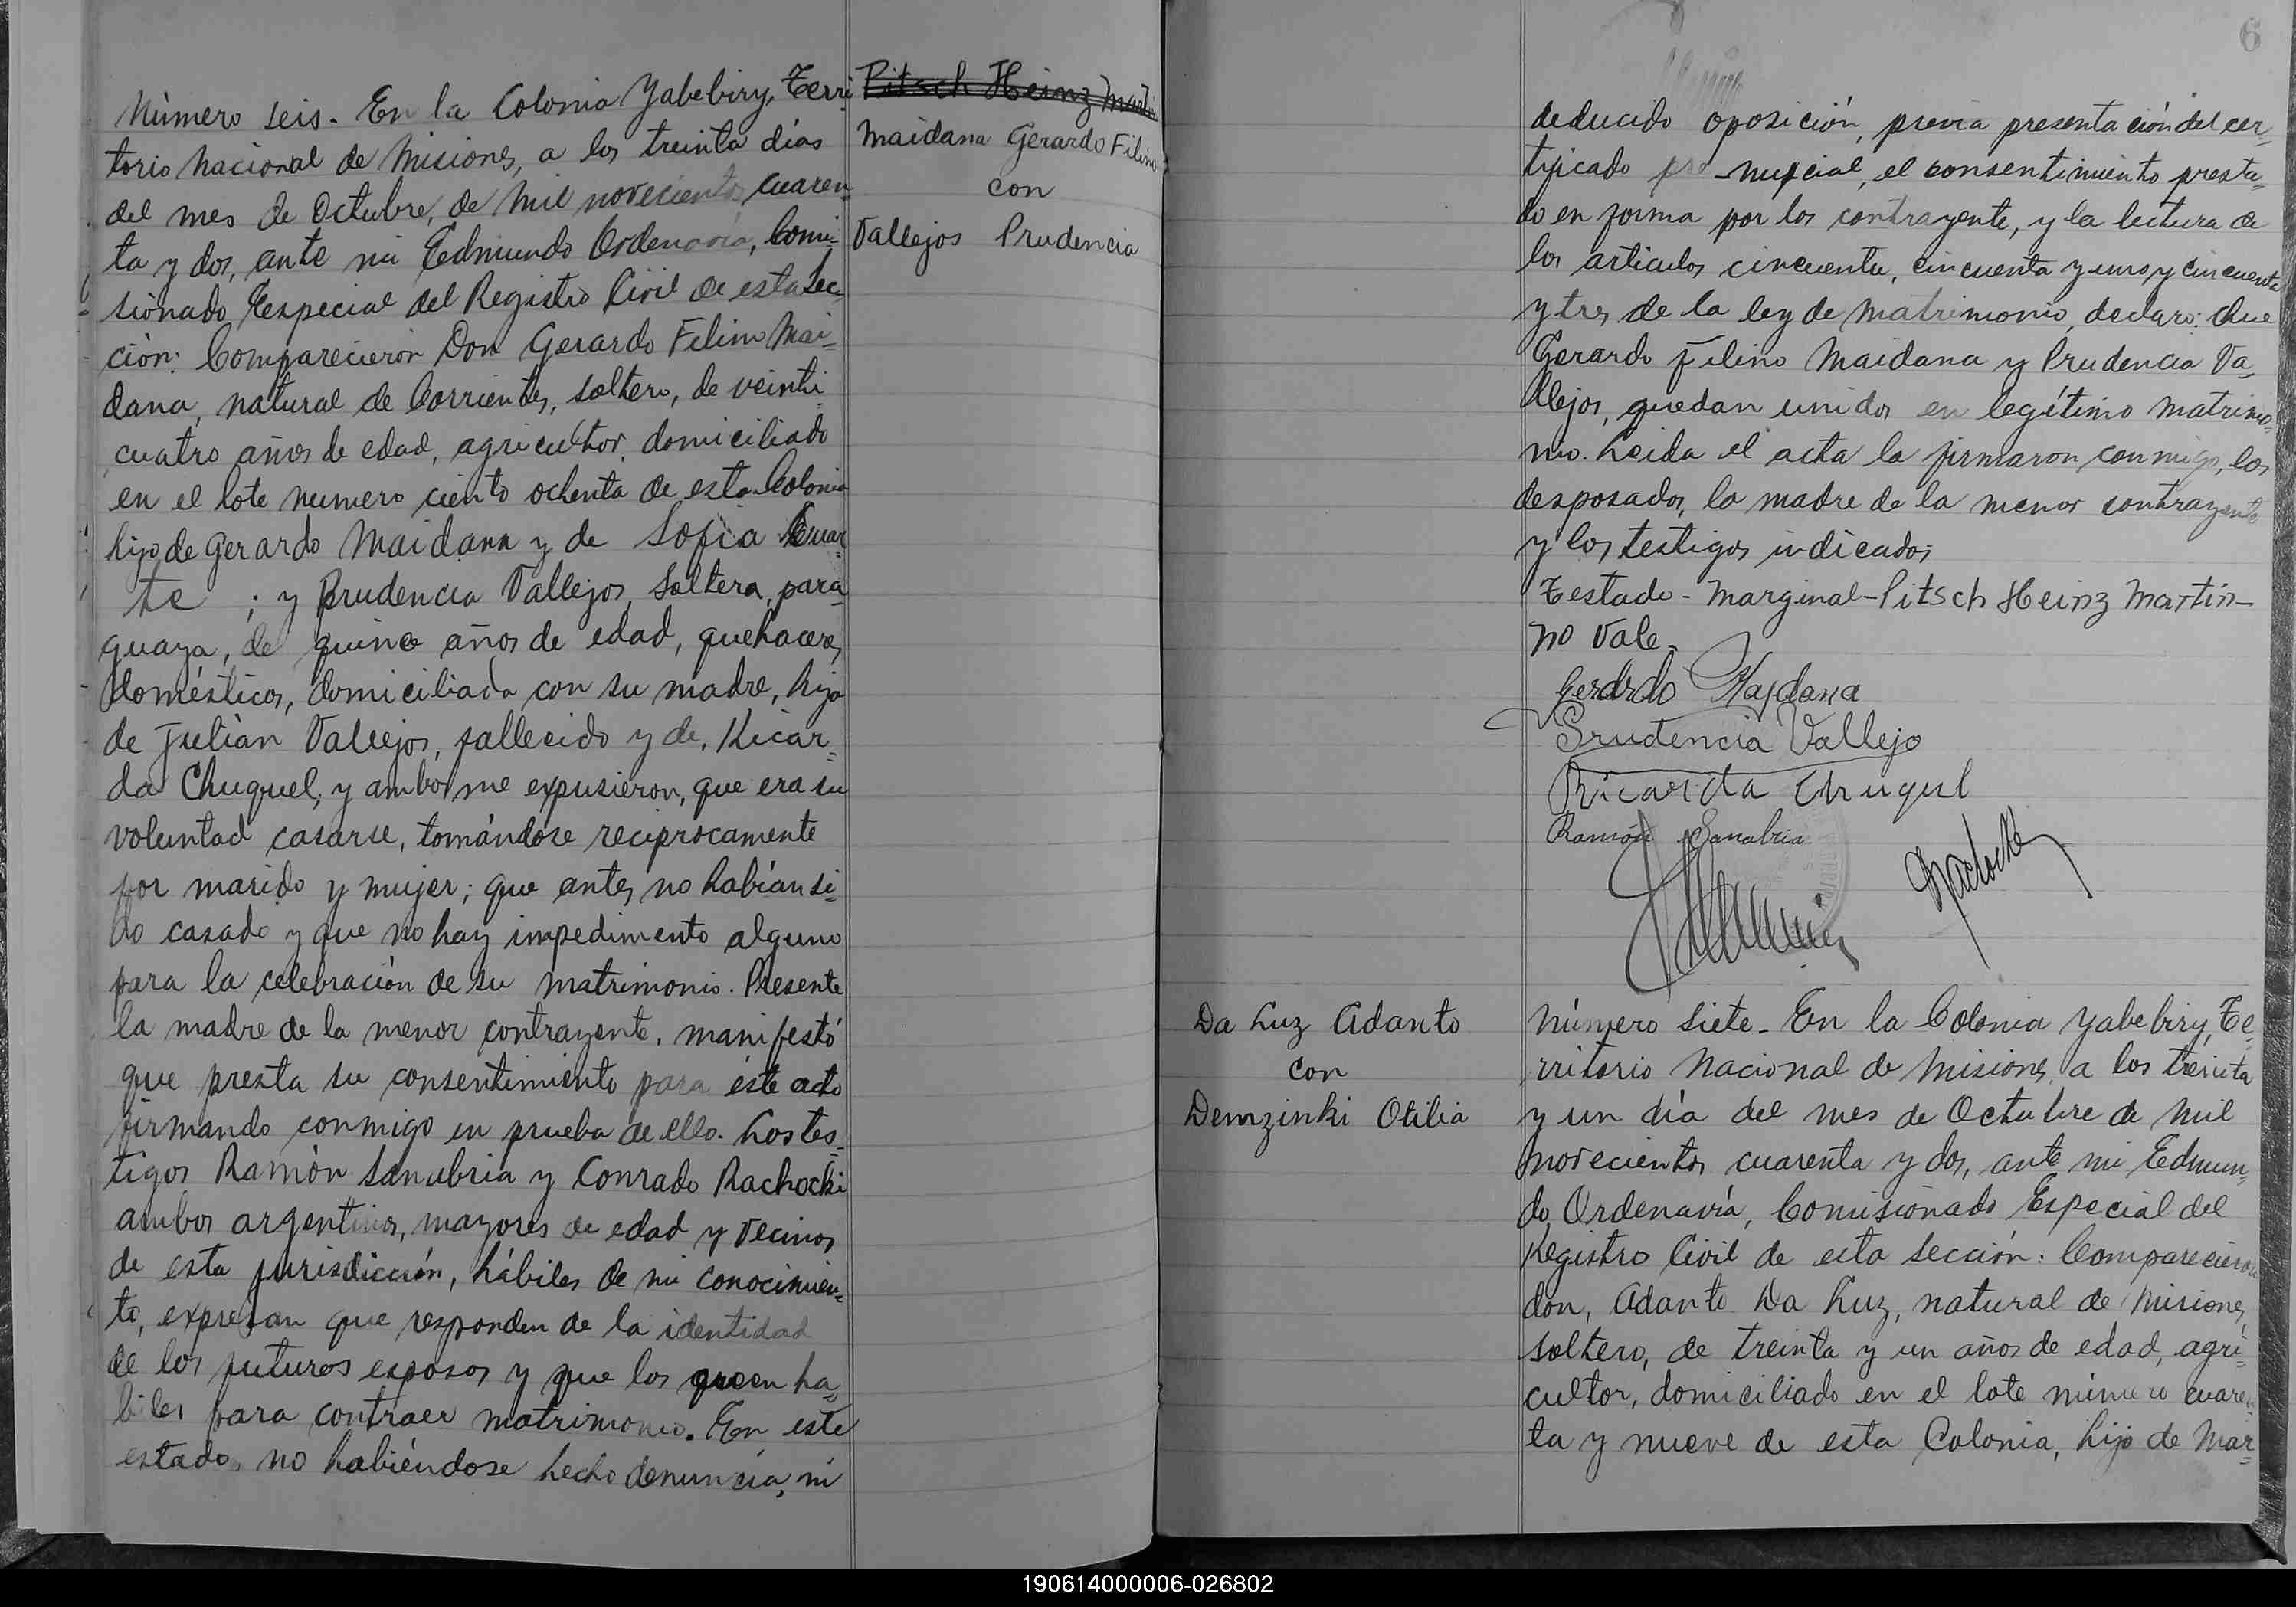 Número seis. En la Colonia Yabebiry, Terri
torio Nacional de Misiones, a los treinta días
del mes de Octubre, de mil novecientos cuaren-
ta y dos, ante mi Edmundo Ordenavía, Comi=
sionado Especial del Registro Civil de esta Sec
ción: Comparecieron Don Gerardo Filino Mai=
dana, natural de Corrientes, soltero, de veinti
cuatro años de edad, agricultor, domiciliado
en el lote numero ciento ochenta de esta Colonia
hijo de Gerardo Maidana y de Sofia
te ; y Prudencia Vallejos, soltera, para=
guaya, de quince años de edad, quehaceres
domésticos, domiciliada con su madre, hija
de Julián Vallejos, fallecido y de, Ricar=
da Chuquel, y ambos me expusieron, que era su
voluntad casarse, tomándose reciprocamente
por marido y mujer; que antes no habían si=
do casado y que no hay impedimento alguno
para la celebración de su matrimonio. Presente
la madre de la menor contrayente, manifestó
que presta su consentimiento para éste acto
firmando conmigo en prueba de ello. Los tes=
tigos Ramón Sanabria y Conrado Rachocki
ambos argentinos, mayores de edad y vecinos
de esta jurisdicción, hábiles de mi conocimien=
to, expresan que responden de la identidad
de los futuros esposos y que los creen ha=
biles para contraer matrimonio. En este
estado, no habiéndose hecho denuncia, ni
Pitsch Heinz Martin
Maidana Gerardo Filino
con
Vallejos Prudencia
6
deducido oposición, previa presentación del cer-
tificado pre-nupcial, el consentimiento presta-
do en forma por los contrayente, y la lectura de
los artículos cincuenta, cincuenta y uno y cincuenta
y tres de la ley de Matrimonio, declaro: Que
Gerardo Filino Maidana y Prudencia Va=
llejos, quedan unidos en legítimo matrimo=
nio. Leida el acta la firmaron conmigo, los
desposados, la madre de la menor contrayente
y los testigos indicados
Testado - Marginal - Pitsch Heinz Martin -
no Vale.
Gerardo Maydana
Prudencia Vallejo
Ricarda Chuquel
Ramón Sanabria
Rachocki
Da Luz Adanto
con
Demzinki Otilia
Número siete. En la Colonia Yabebiry, Te=
rritorio Nacional de Misiones, a los treinta
y un día del mes de Octubre de mil
novecientos cuarenta y dos, ante mi Edmun=
do Ordenavía, Comisionado Especial del
Registro Civil de esta sección: Comparecieron
don, Adanto Da Luz, natural de Misiones,
soltero, de treinta y un años de edad, agri=
cultor, domiciliado en el lote número cuaren=
ta y nueve de esta Colonia, hijo de Mar=
190614000006-026802